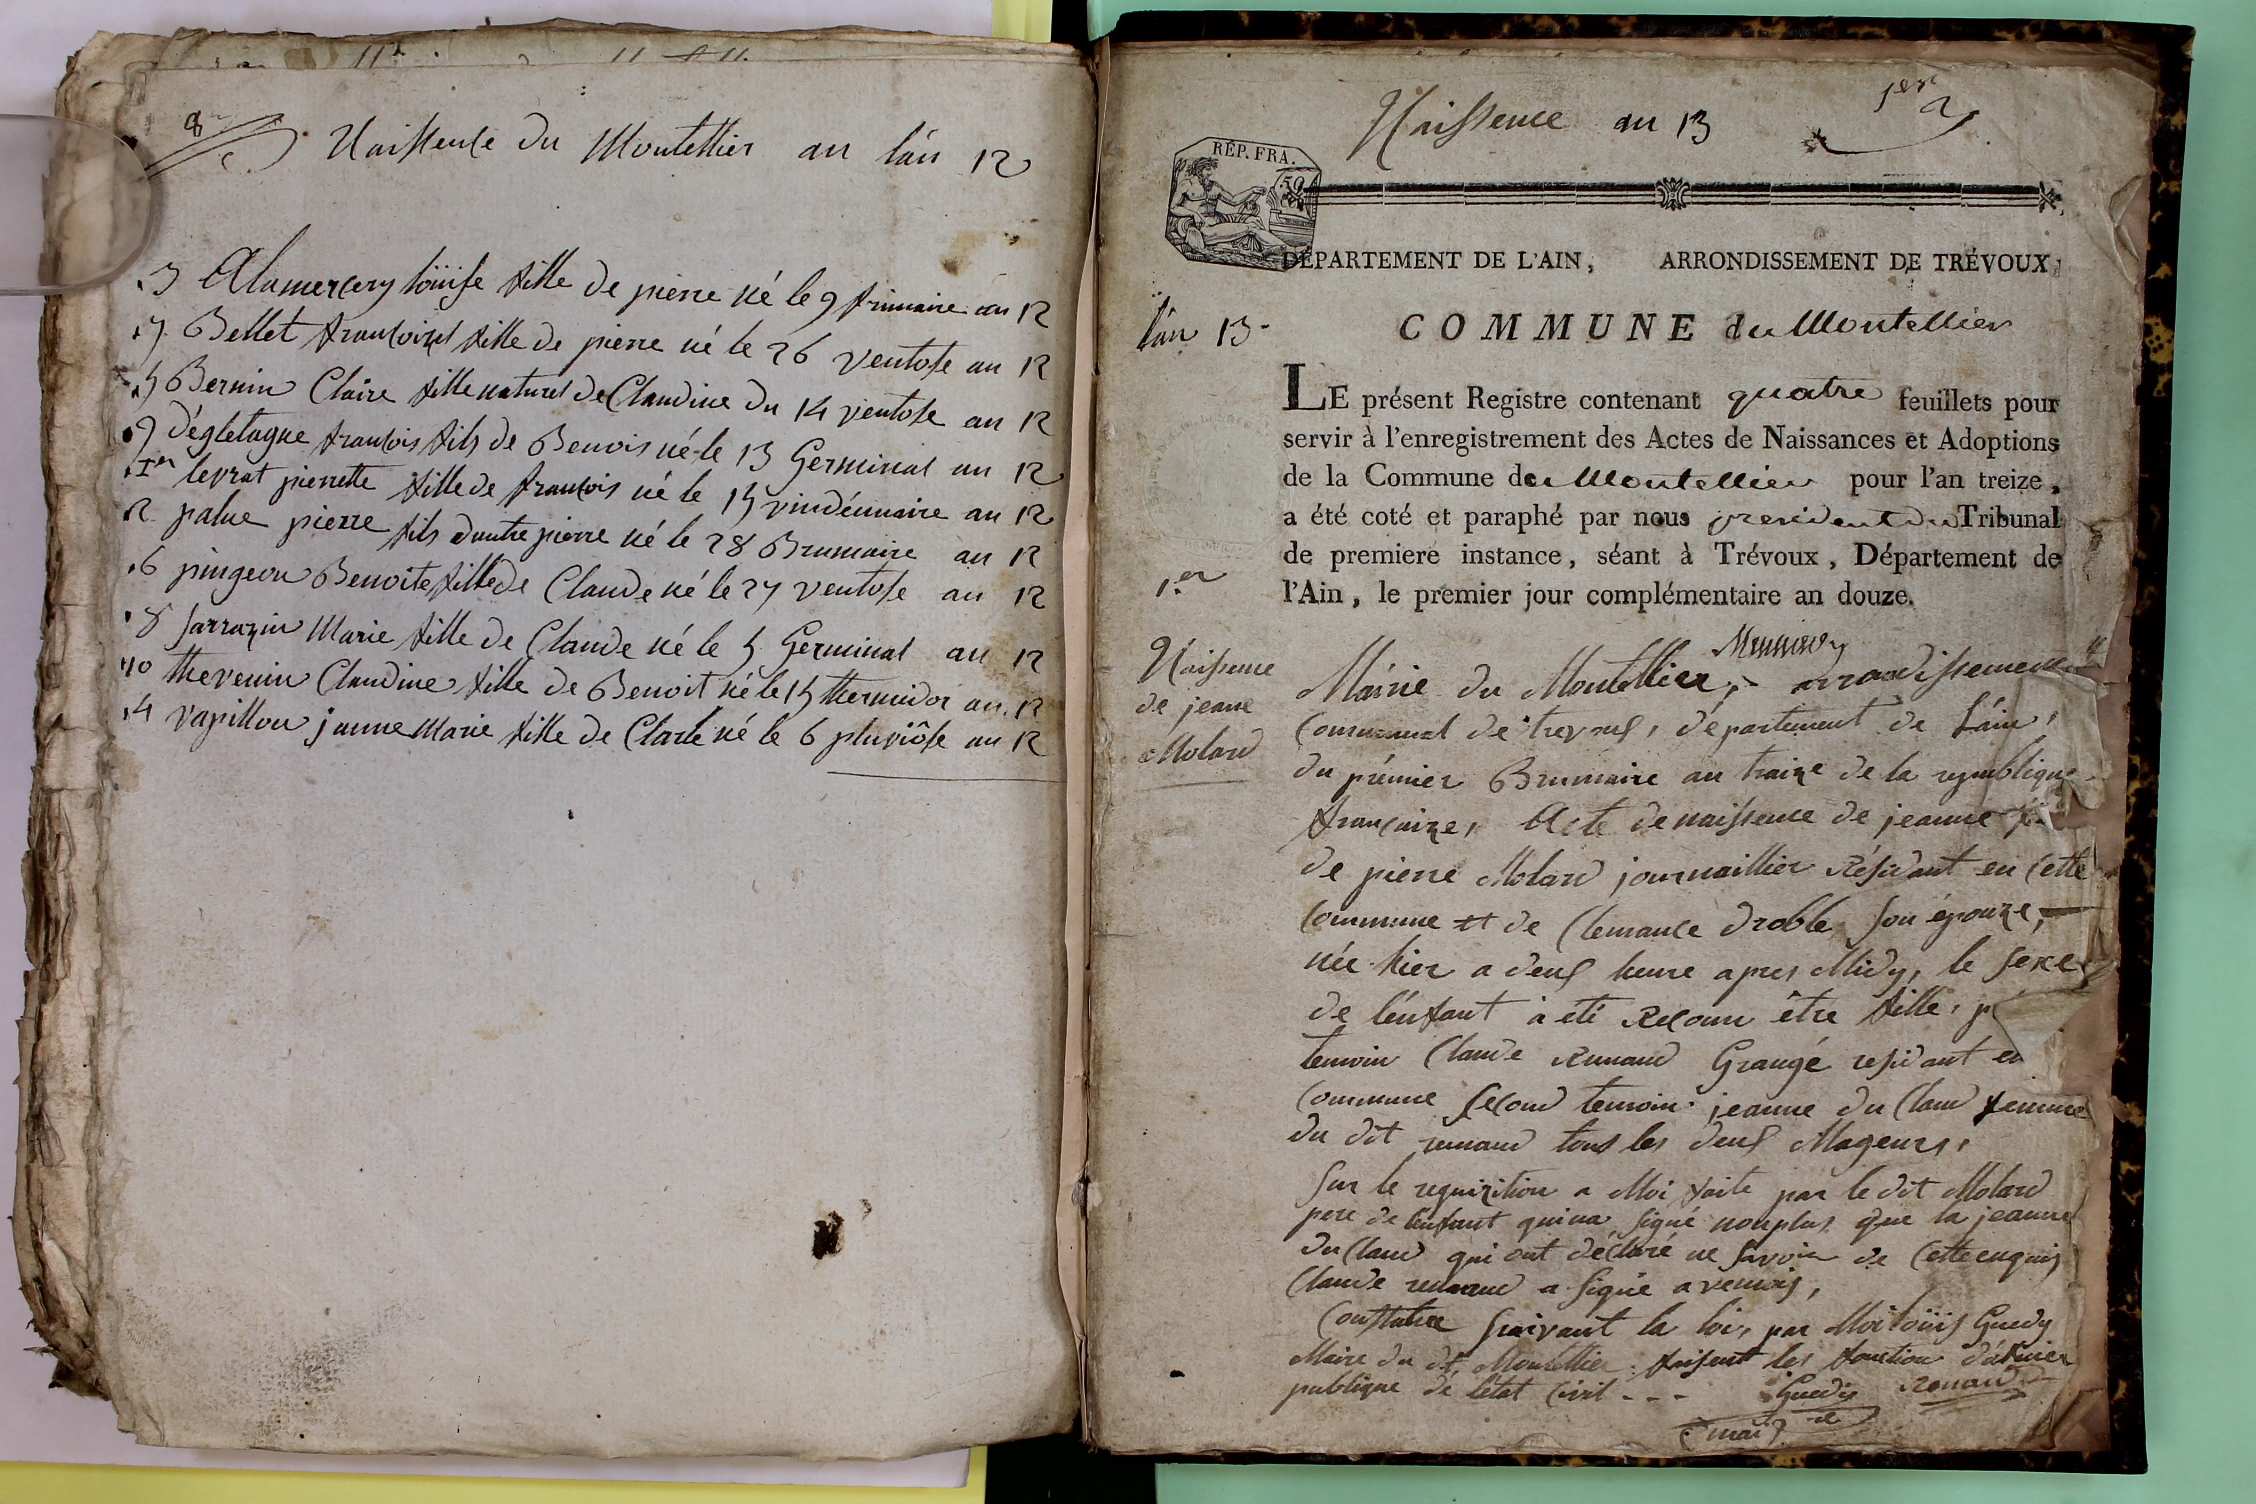 8
Naissence du Montellier an l'án 12
.3 Alamercery löuise fille de pierre né le 9 frimaire an 12
.7. Bellet françoise fille de pierre né le 26 ventose an 12
.5 Bernin Claire fille naturel de Claudine du 14 ventose an 12
.9 déglétagne françois fils de Benois né le 13 Germinal an 12
.1er levrat pierrette fille de françois né le 15 vindémiaire an 12
.2. palue pierre fils dautre pierre né le 28 Brumaire an 12
.6 pingeon Benoite fille de Claude né le 27 ventose an 12
.8 Sarrazin Marie fille de Claude né le 5 Germinal an 12
10 thevenin Claudine fille de Benoit né le 15 thermidor an 12
.4 vapillon janne Marie fille de Clade né le 6 pluviôse an 12
Naissence an 13
1er
RÉP. FRA.
50
DÉPARTEMENT DE L'AIN, ARRONDISSEMENT DE TRÉVOUX,
l'án 13-
COMMUNE du Montellier
LE présent Registre contenant quatre feuillets pour
servir à l'enregistrement des Actes de Naissances et Adoptions
de la Commune du Montellier pour l'an treize,
a été coté et paraphé par nous president du Tribunal
de premiere instance, séant à Trévoux, Département de
l'Ain, le premier jour complémentaire an douze.
1.er
Naissence
de jeanne
Molard
Mairie du Montellier, arrondissement
Communal de trevoux, département de l'ain,
du prémier Brumaire an traize de la republique
françaize, Acte de naissence de jeanne
de pierre Molard journaillier Résidant en Cette
Commune et de Clemance Droble son épouze,
née hier a deux heure apres Midy, le sexe
de l'énfant à été Reconu être fille,
temoin Claude Renaud Grangé residant en
Commune second temoin jeanne du Claud femme
du dit renaud tous les deux Mageurs,
Sur le requizition a Moi faite par le dit Molard
pere de lenfant qui na signé nonplus que la jeanne
du Claud qui ont déclaré ne savoir de Cette enquis
Claude renaud a signé avemois,
Constatée suivant la loi, par Moi loüis Guedy
Maire du dt Montellier faisent les fonction d'áficier
publique dé letat Civil - - - Guedy Renaud
maire